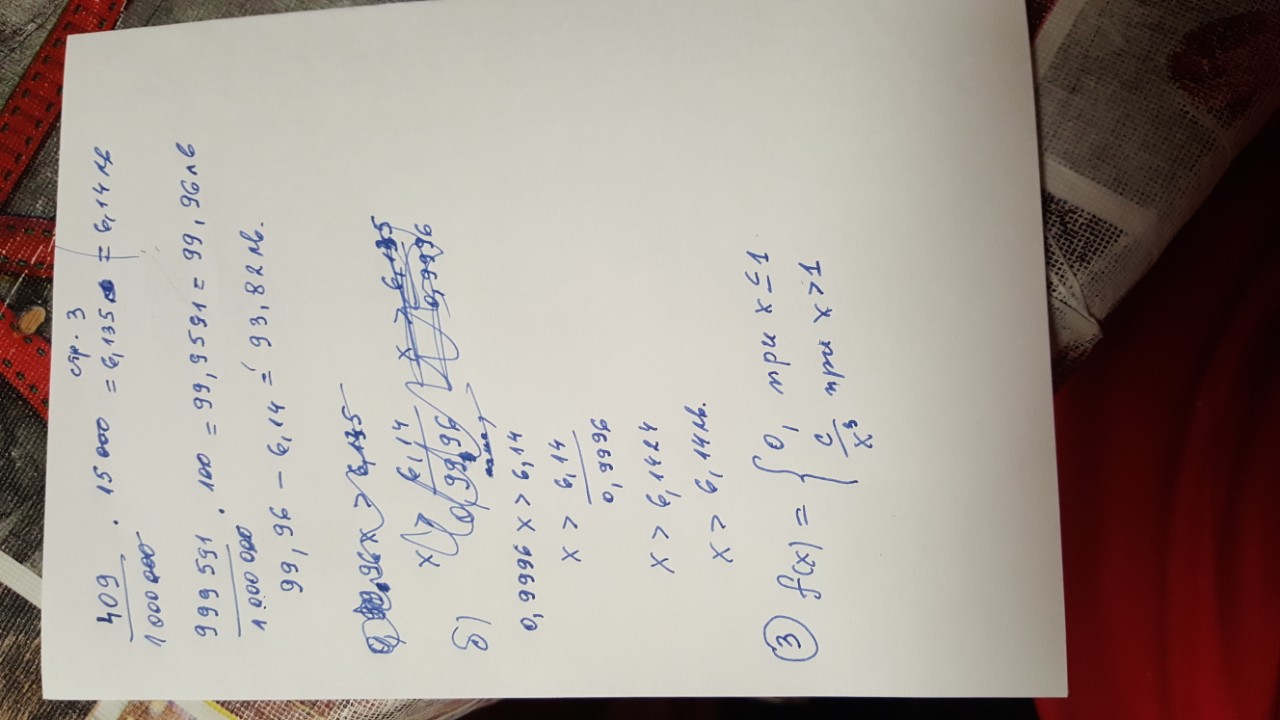 стр. 3
409/1000000 . 15000 = 6,135 = 6,14 лв
999591/1000000 . 100 = 99,9591 = 99,96 лв
99,96 - 6,14 = 93,82 лв.
x > 6,135
x > 6,14/0,9996 x > 6,135/0,9996
б)
0,9996 x > 6,14
x > 6,14/0,9996
x > 6,1424
x > 6,14 лв.
3 f(x) = { 0, при x ≤ 1
c/x³ при x > 1